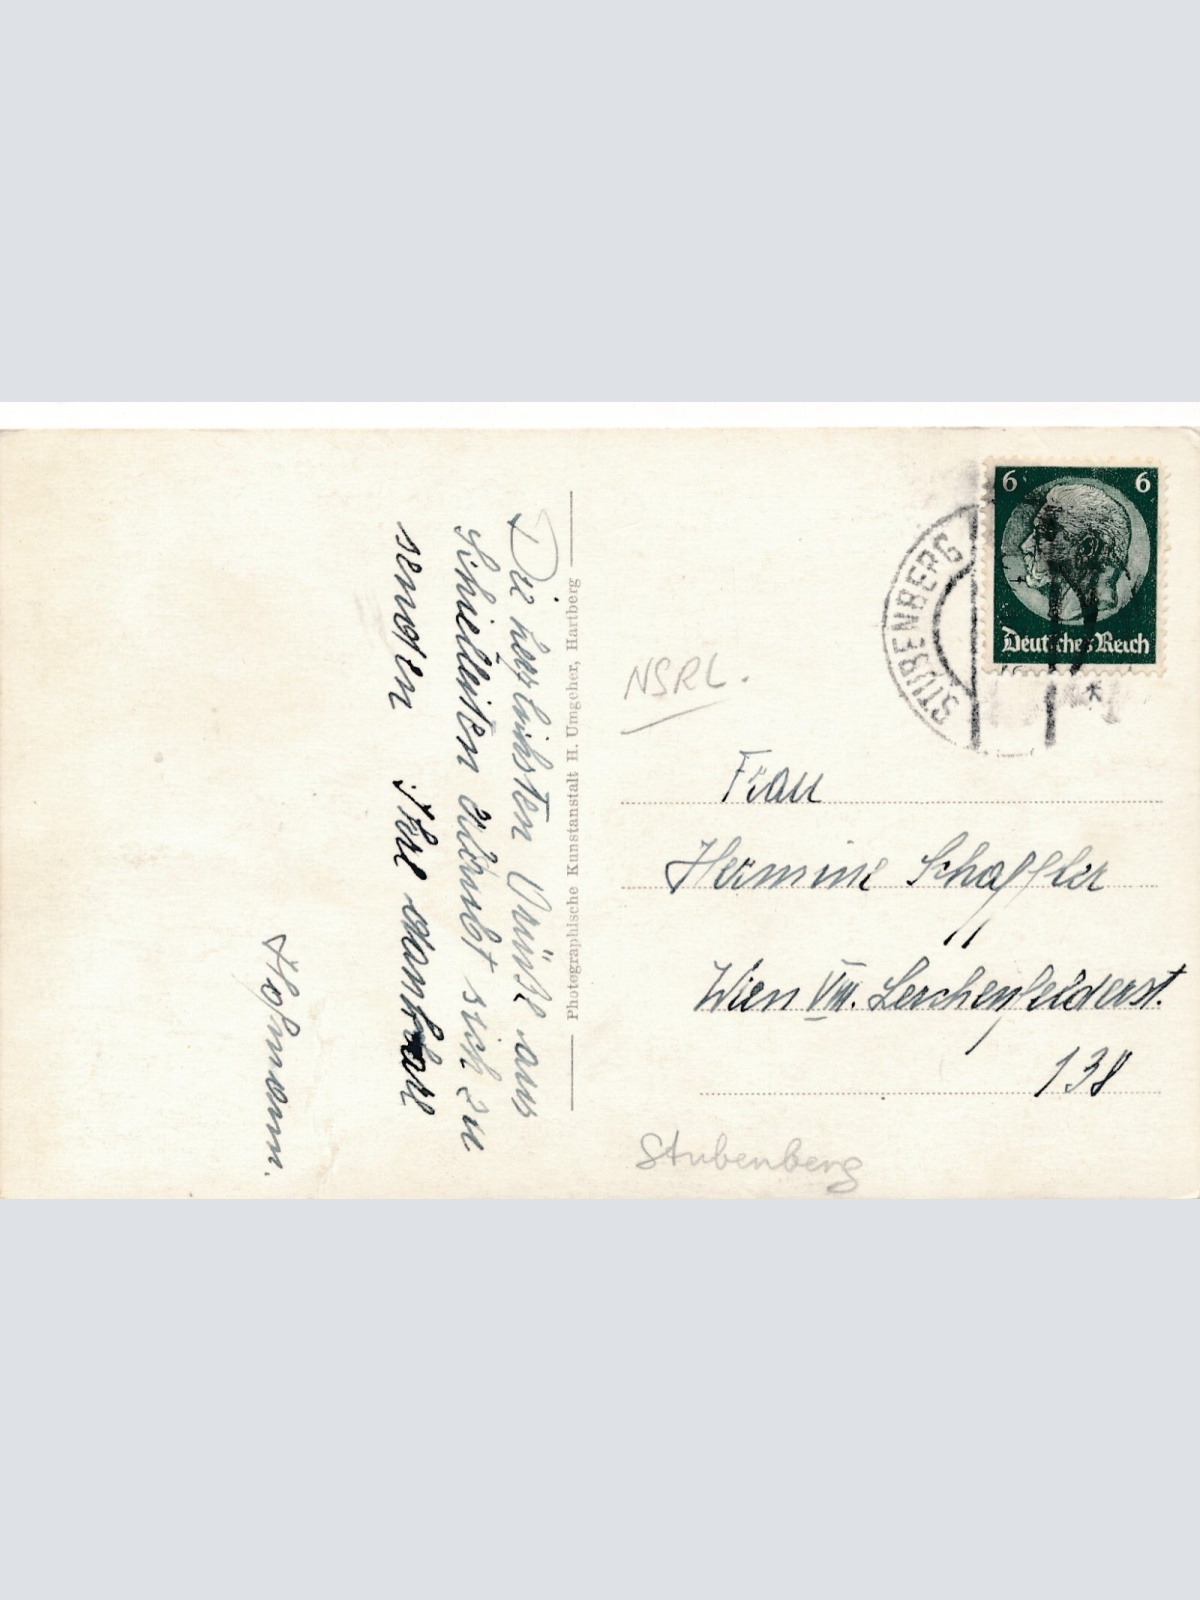 Die herzlichsten Grüße aus
Schielleiten erlaubt sich zu
senden Ihre dankbare
Hofmann.
Photographische Kunstanstalt H. Umgeher, Hartberg
NSRL.
6 6
Deutsches Reich
STUBENBERG
*
Frau
Hermine Schaffler
Wien VIII. Lerchenfelderst.
138
Stubenberg